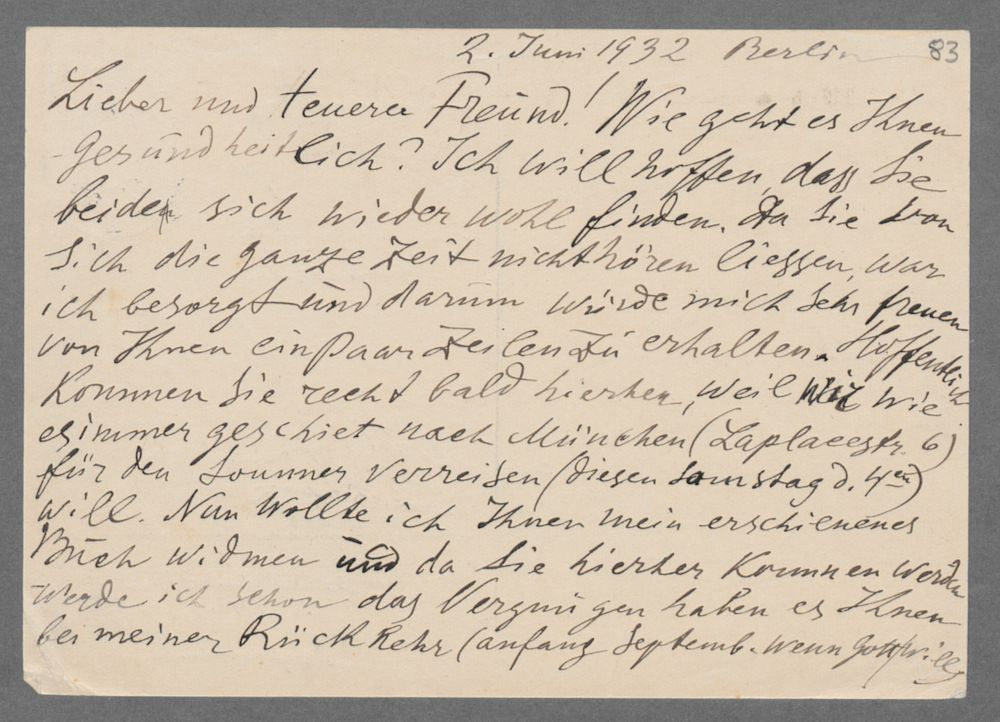 2. Juni 1932 Berlin 83
Lieber und teurer Freund! Wie geht es Ihnen
gesundheitlich? Ich will hoffen, dass Sie
beiden sich wieder wohl finden. Da Sie von
sich die ganze Zeit nicht hören liessen, war
ich besorgt und darum würde mich sehr freuen
von Ihnen ein paar Zeilen zu erhalten. Hoffentlich
kommen Sie recht bald hierher, weil wir wie
es immer geschiet nach München (Laplacestr. 6)
für den Sommer verreisen (diesen Samstag d. 4ten)
will. Nun wollte ich Ihnen mein erschienenes
Buch widmen und da Sie hierher kommen werden
werde ich schon das Vergnügen haben es Ihnen
bei meiner Rückkehr (anfang Septemb. wenn Gott will)